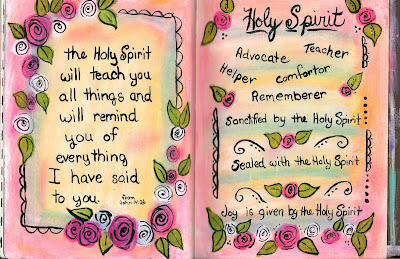 the Holy Spirit
will teach you
all things and
will remind
you of
everything
I have said
to you.
from
John 14:26
Holy Spirit
Advocate Teacher
Helper comfortor
Rememberer
Sanctified by the Holy Spirit
Sealed with the Holy Spirit
Joy is given by the Holy Spirit